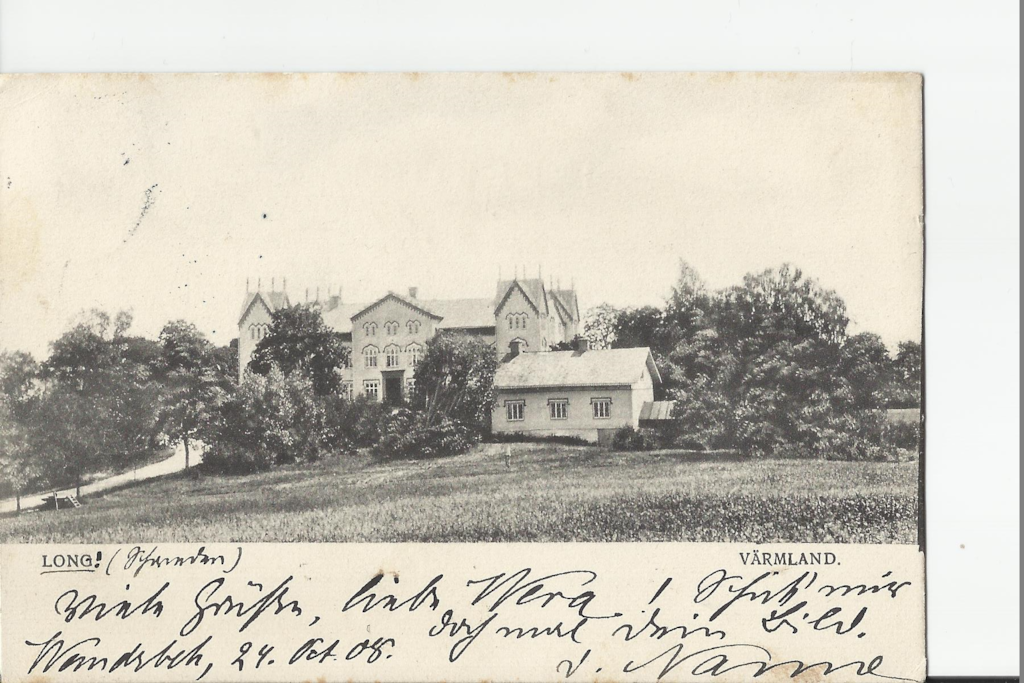 LONG! (Schweden) VÄRMLAND.
Viele Grüße, liebe Wera! Schick' mir
doch mal dein Bild.
Wandsbek, 24. Oct. 08.
d. Nanne